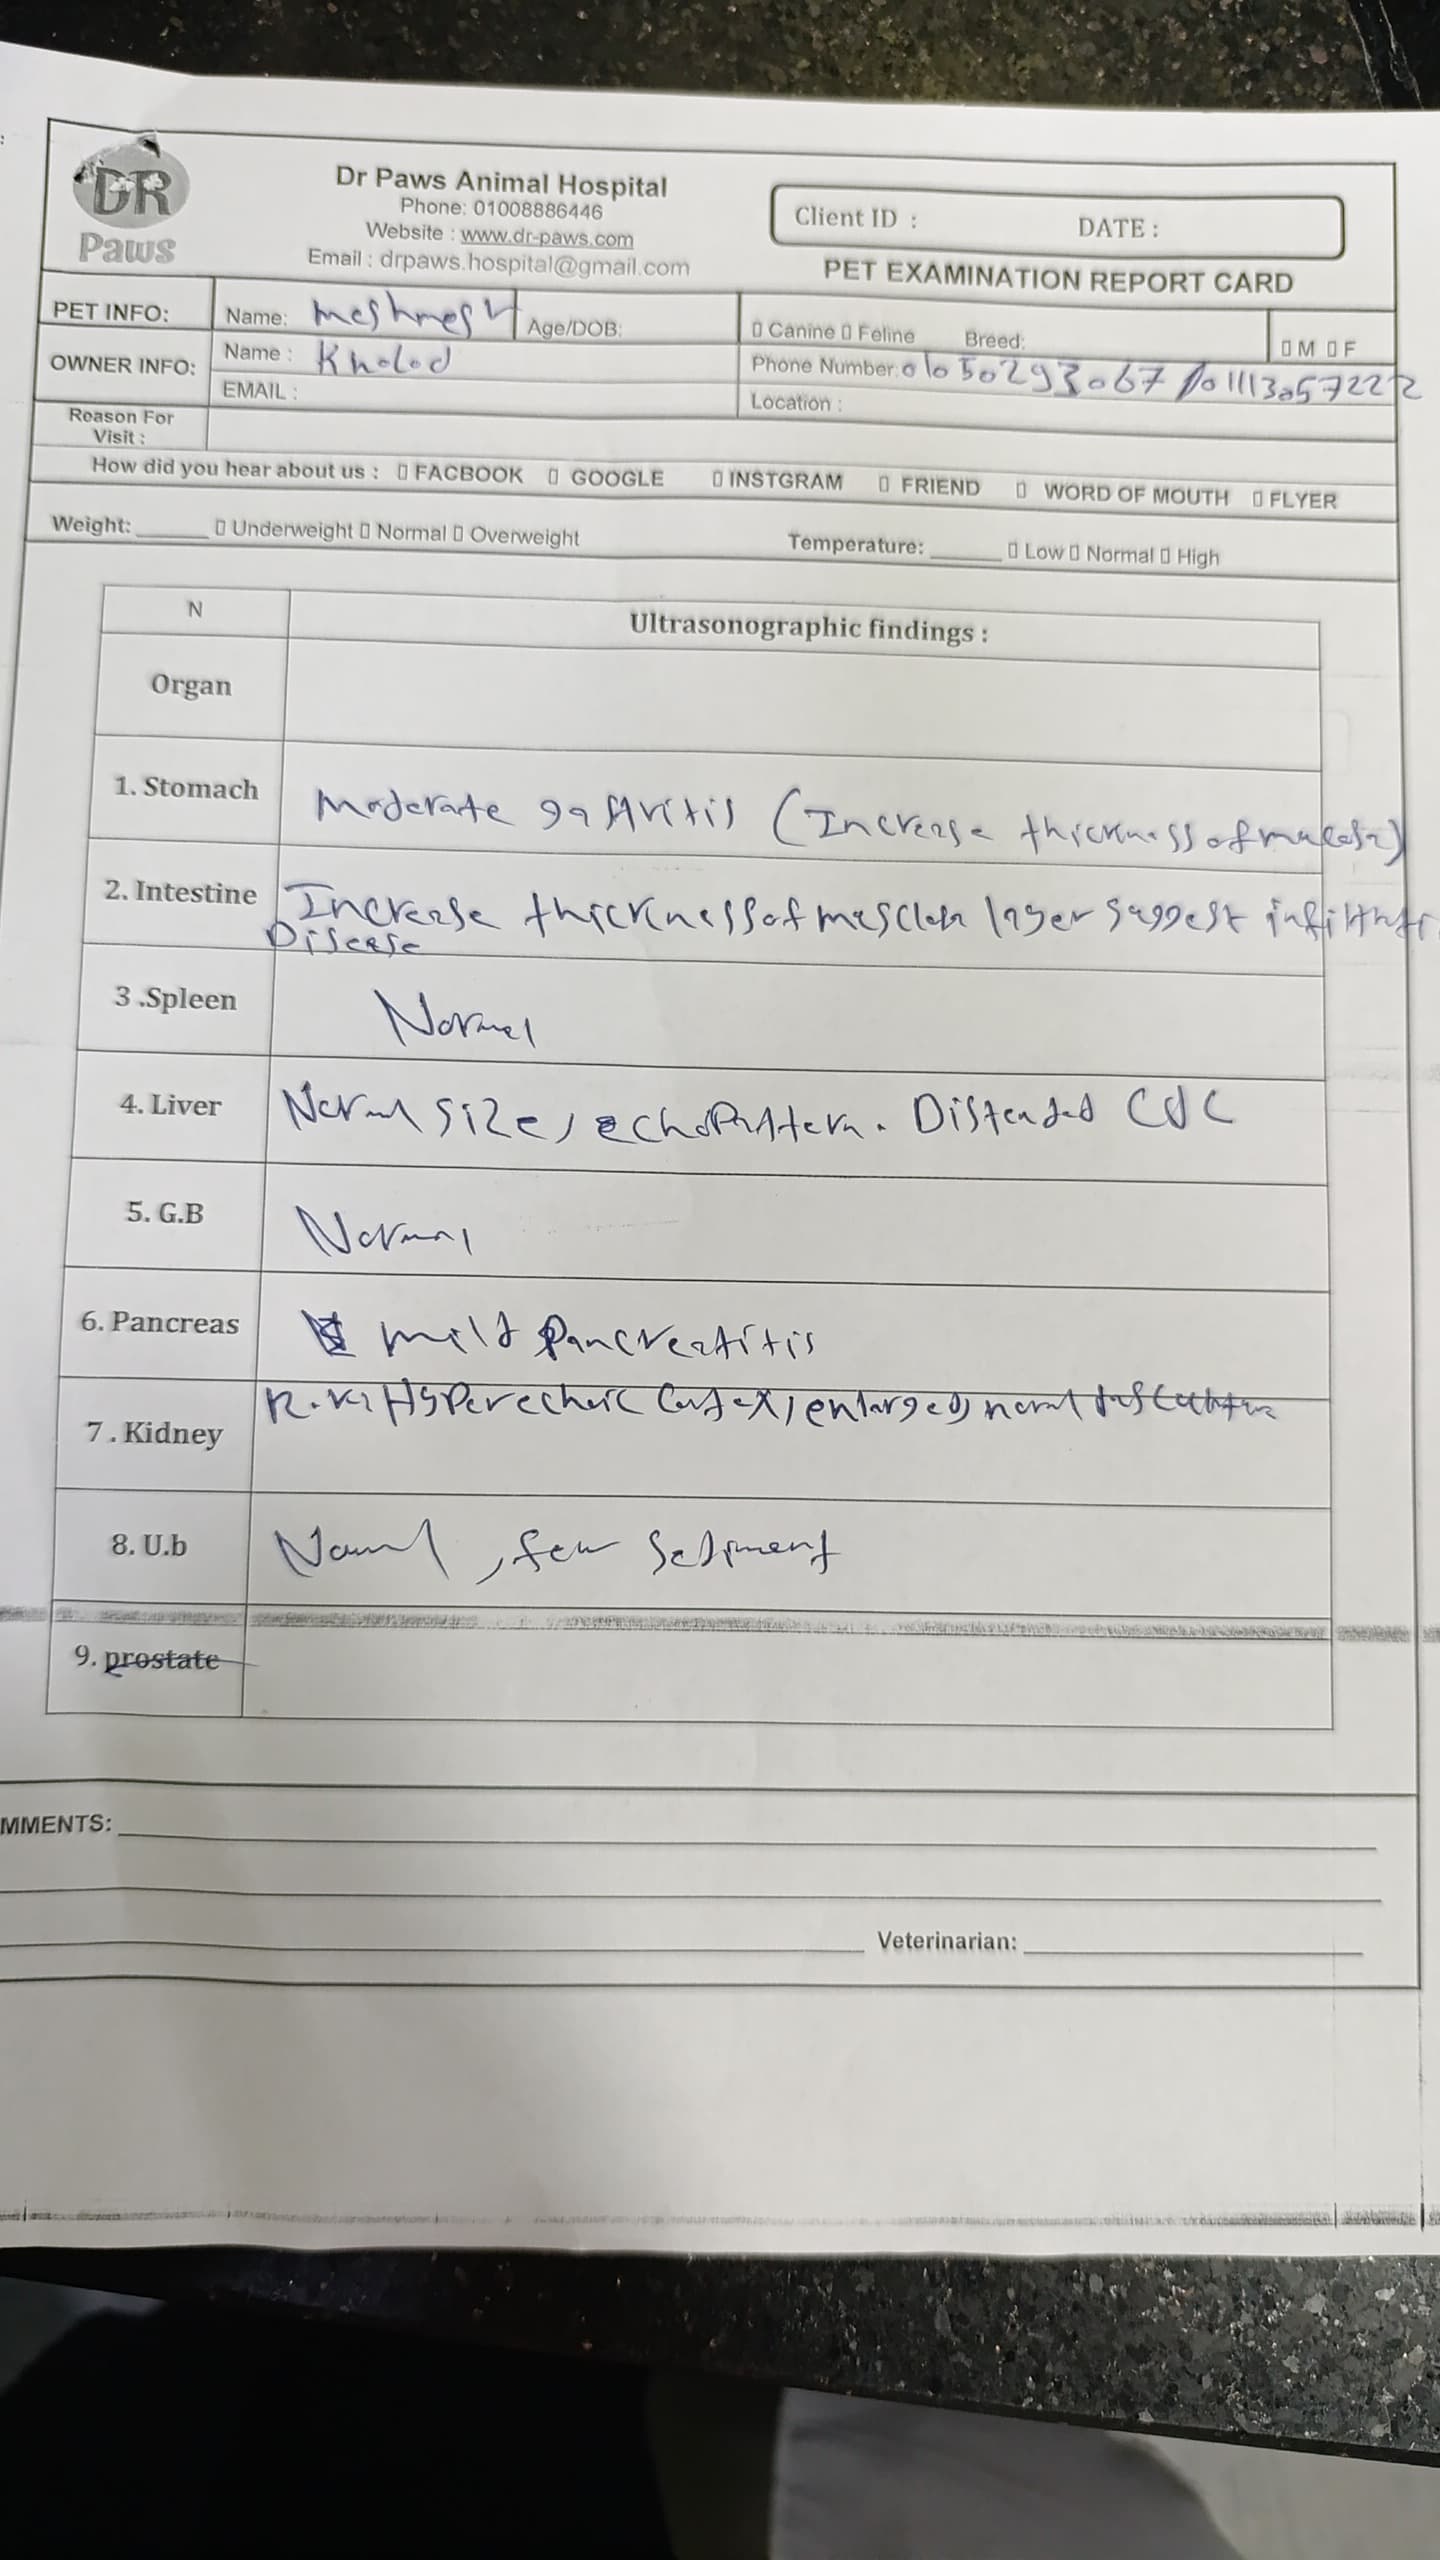 DR
Paws
Dr Paws Animal Hospital
Phone: 01008886446
Website : www.dr-paws.com
Email : drpaws.hospital@gmail.com
Client ID : DATE :
PET EXAMINATION REPORT CARD
PET INFO: Name: meshmesh Age/DOB: Canine Feline Breed: M F
OWNER INFO: Name : Kholod Phone Number: 01050293067 / 01113057222
EMAIL : Location :
Reason For
Visit :
How did you hear about us : FACBOOK GOOGLE INSTGRAM FRIEND WORD OF MOUTH FLYER
Weight: Underweight Normal Overweight Temperature: Low Normal High
N Ultrasonographic findings :
Organ
1. Stomach Moderate gastritis (Increase thickness of mucosa)
2. Intestine Increase thickness of muscular layer suggest
Disease
3 .Spleen Normal
4. Liver Normal size, echopattern. Distended
5. G.B Normal
6. Pancreas mild pancreatitis
7 . Kidney Hyperechoic Cortex, enlarged, normal
8. U.b Normal, few sediment
9. prostate
MMENTS:
Veterinarian: